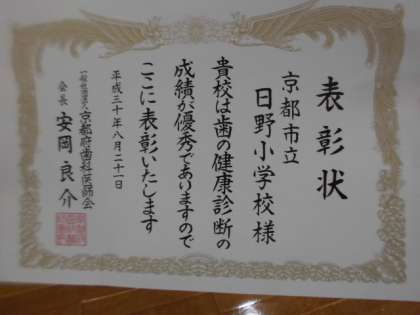 表彰状
京都市立
日野小学校様
貴校は歯の健康診断の
成績が優秀でありますので
ここに表彰いたします
平成三十年八月二十一日
一般社団法人京都府歯科医師会
会長 安岡良介